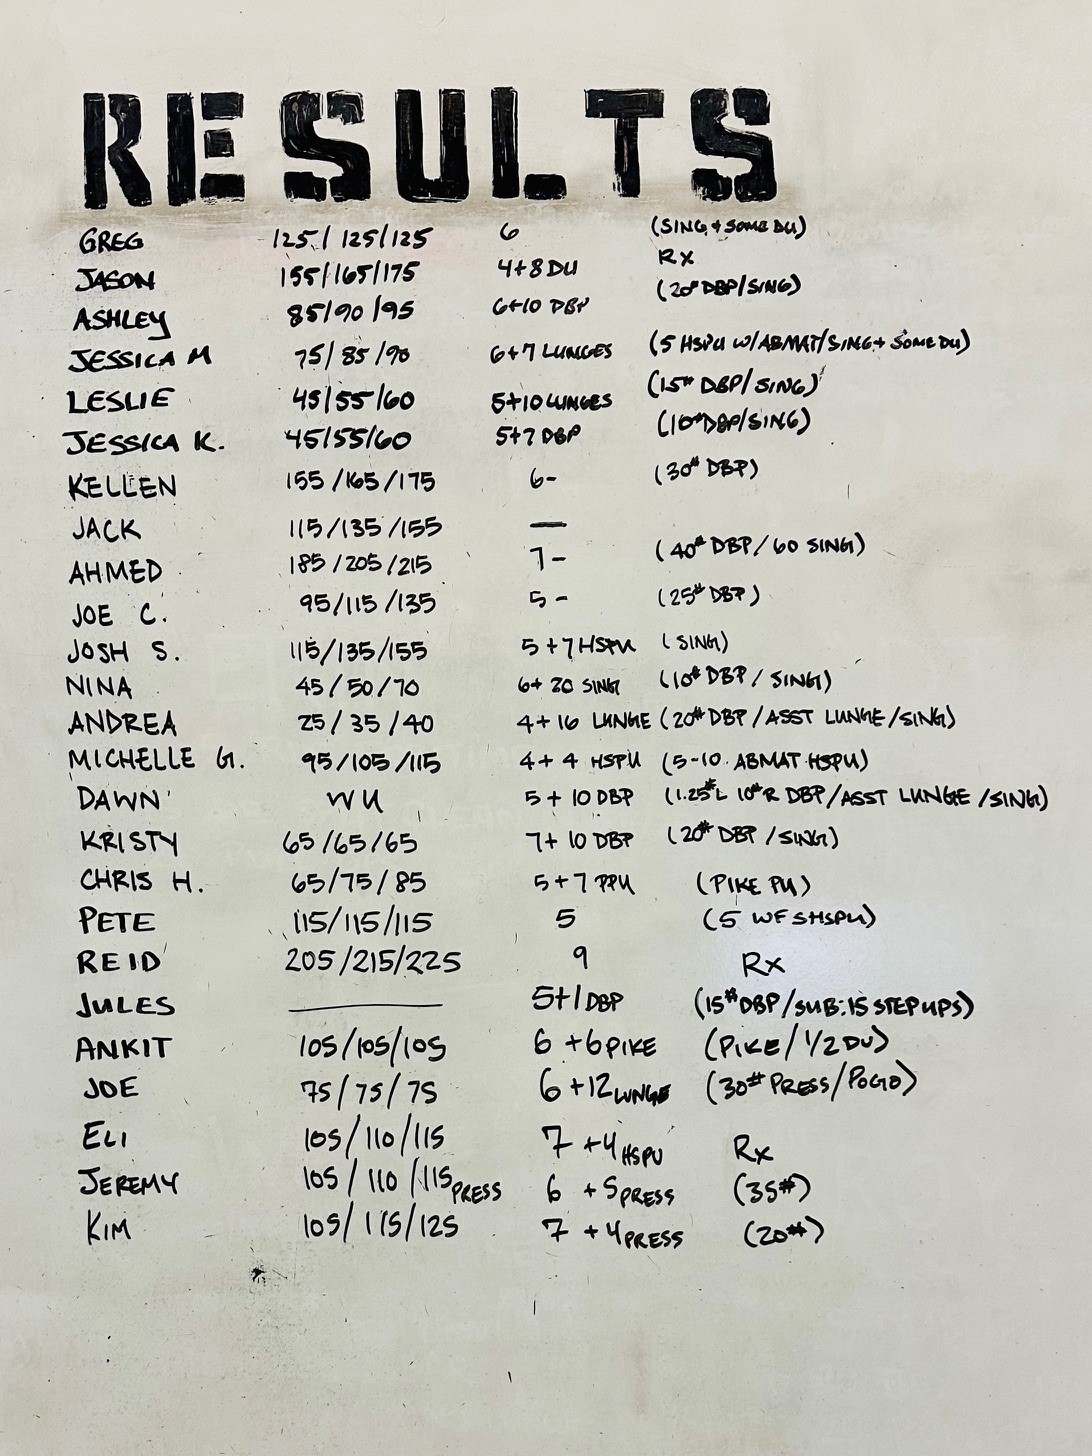 RESULTS
GREG 125/125/125 6 (SING + SOME DU)
JASON 155/165/175 4+8 DU Rx
ASHLEY 85/90/95 6+10 DBP (20# DBP/SING)
JESSICA M 75/85/90 6+7 LUNGES (5 HSPU W/ABMAT/SING + SOME DU)
LESLIE 45/55/60 5+10 LUNGES (15# DBP/SING)
JESSICA K. 45/55/60 5+7 DBP (10# DBP/SING)
KELLEN 155/165/175 6- (30# DBP)
JACK 115/135/155 —
AHMED 185/205/215 7- (40# DBP/60 SING)
JOE C. 95/115/135 5- (25# DBP)
JOSH S. 115/135/155 5+7 HSPU (SING)
NINA 45/50/70 6+20 SING (10# DBP/SING)
ANDREA 25/35/40 4+16 LUNGE (20# DBP/ASST LUNGE/SING)
MICHELLE G. 95/105/115 4+4 HSPU (5-10 ABMAT HSPU)
DAWN WU 5+10 DBP (1.25# L 10# R DBP/ASST LUNGE/SING)
KRISTY 65/65/65 7+10 DBP (20# DBP/SING)
CHRIS H. 65/75/85 5+7 PPU (PIKE PU)
PETE 115/115/115 5 (5 WFSHSPU)
REID 205/215/225 9 Rx
JULES — 5+1 DBP (15# DBP/SUB:15 STEP UPS)
ANKIT 105/105/105 6+6 PIKE (PIKE/1/2 DU)
JOE 75/75/75 6+12 LUNGE (30# PRESS/POGO)
ELI 105/110/115 7+4 HSPU Rx
JEREMY 105/110/115 PRESS 6+5 PRESS (35#)
KIM 105/115/125 7+4 PRESS (20#)